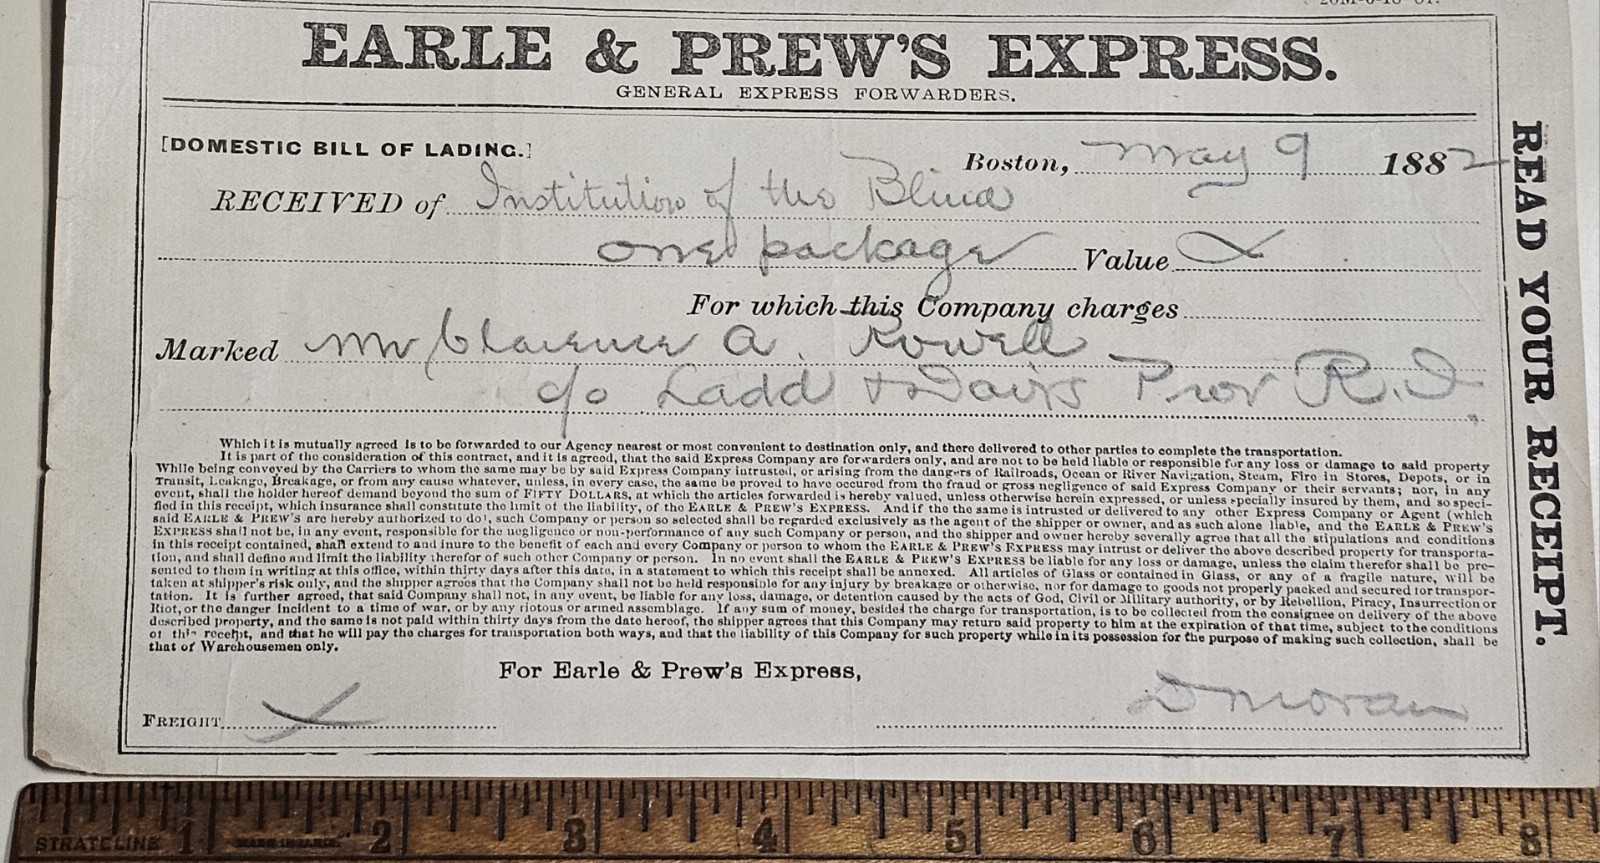 EARLE & PREW'S EXPRESS.
GENERAL EXPRESS FORWARDERS.
[DOMESTIC BILL OF LADING.]
Boston, May 9 1882
RECEIVED of Institution of the Blind
one package Value
For which this Company charges
Marked Mr Clarence A. Rowell
c/o Ladd & Davis Prov R.I.
Which it is mutually agreed is to be forwarded to our Agency nearest or most convenient to destination only, and there delivered to other parties to complete the transportation.
It is part of the consideration of this contract, and it is agreed, that the said Express Company are forwarders only, and are not to be held liable or responsible for any loss or damage to said property
While being conveyed by the Carriers to whom the same may be by said Express Company intrusted, or arising from the dangers of Railroads, Ocean or River Navigation, Steam, Fire in Stores, Depots, or in
Transit, Leakage, Breakage, or from any cause whatever, unless, in every case, the same be proved to have occured from the fraud or gross negligence of said Express Company or their servants; nor, in any
event, shall the holder hereof demand beyond the sum of FIFTY DOLLARS, at which the articles forwarded is hereby valued, unless otherwise herein expressed, or unless specially insured by them, and so speci-
fied in this receipt, which insurance shall constitute the limit of the liability, of the EARLE & PREW'S EXPRESS. And if the the same is intrusted or delivered to any other Express Company or Agent (which
said EARLE & PREW'S are hereby authorized to do), such Company or person so selected shall be regarded exclusively as the agent of the shipper or owner, and as such alone liable, and the EARLE & PREW'S
EXPRESS shall not be, in any event, responsible for the negligence or non-performance of any such Company or person, and the shipper and owner hereby severally agree that all the stipulations and conditions
in this receipt contained, shall extend to and inure to the benefit of each and every Company or person to whom the EARLE & PREW'S EXPRESS may intrust or deliver the above described property for transporta-
tion, and shall define and limit the liability therefor of such other Company or person. In no event shall the EARLE & PREW'S EXPRESS be liable for any loss or damage, unless the claim therefor shall be pre-
sented to them in writing at this office, within thirty days after this date, in a statement to which this receipt shall be annexed. All articles of Glass or contained in Glass, or any of a fragile nature, will be
taken at shipper's risk only, and the shipper agrees that the Company shall not be held responsible for any injury by breakage or otherwise, nor for damage to goods not properly packed and secured for transpor-
tation. It is further agreed, that said Company shall not, in any event, be liable for any loss, damage, or detention caused by the acts of God, Civil or Military authority, or by Rebellion, Piracy, Insurrection or
Riot, or the danger incident to a time of war, or by any riotous or armed assemblage. If any sum of money, besided the charge for transportation, is to be collected from the consignee on delivery of the above
described property, and the same is not paid within thirty days from the date hereof, the shipper agrees that this Company may return said property to him at the expiration of that time, subject to the conditions
of this receipt, and that he will pay the charges for transportation both ways, and that the liability of this Company for such property while in its possession for the purpose of making such collection, shall be
that of Warehousemen only.
For Earle & Prew's Express,
D Moran
FREIGHT
READ YOUR RECEIPT.
STRATELINE
1 2 3 4 5 6 7 8